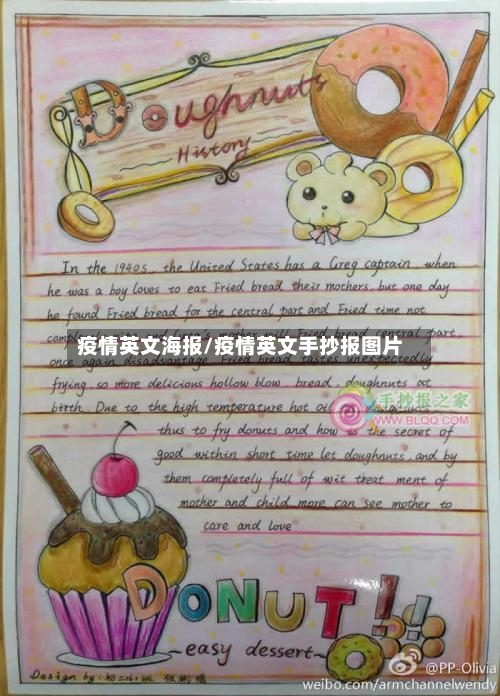 Doughnuts
History
In the 1940s, the United States has a Greg captain, when
he was a boy loves to eat Fried bread their mothers, but one day
he found Fried bread for the central part and Fried time not
疫情英文海报/疫情英文手抄报图片
once again disadvantage Fried bread tastes unexpectedly
frying, so more delicious hollow blow, bread, doughnuts at
birth. Due to the high temperature hot oil
手抄报之家
WWW.BLQQ.COM
thus to fry donuts and how is the secret of
good within short time let doughnuts, and by
them completely full of wit treat ment of
mother and child more can see mother to
care and love
DONUT!!
~easy dessert~
Design by: 初二(6)班
@PP-Olivia
weibo.com/armchannelwendy